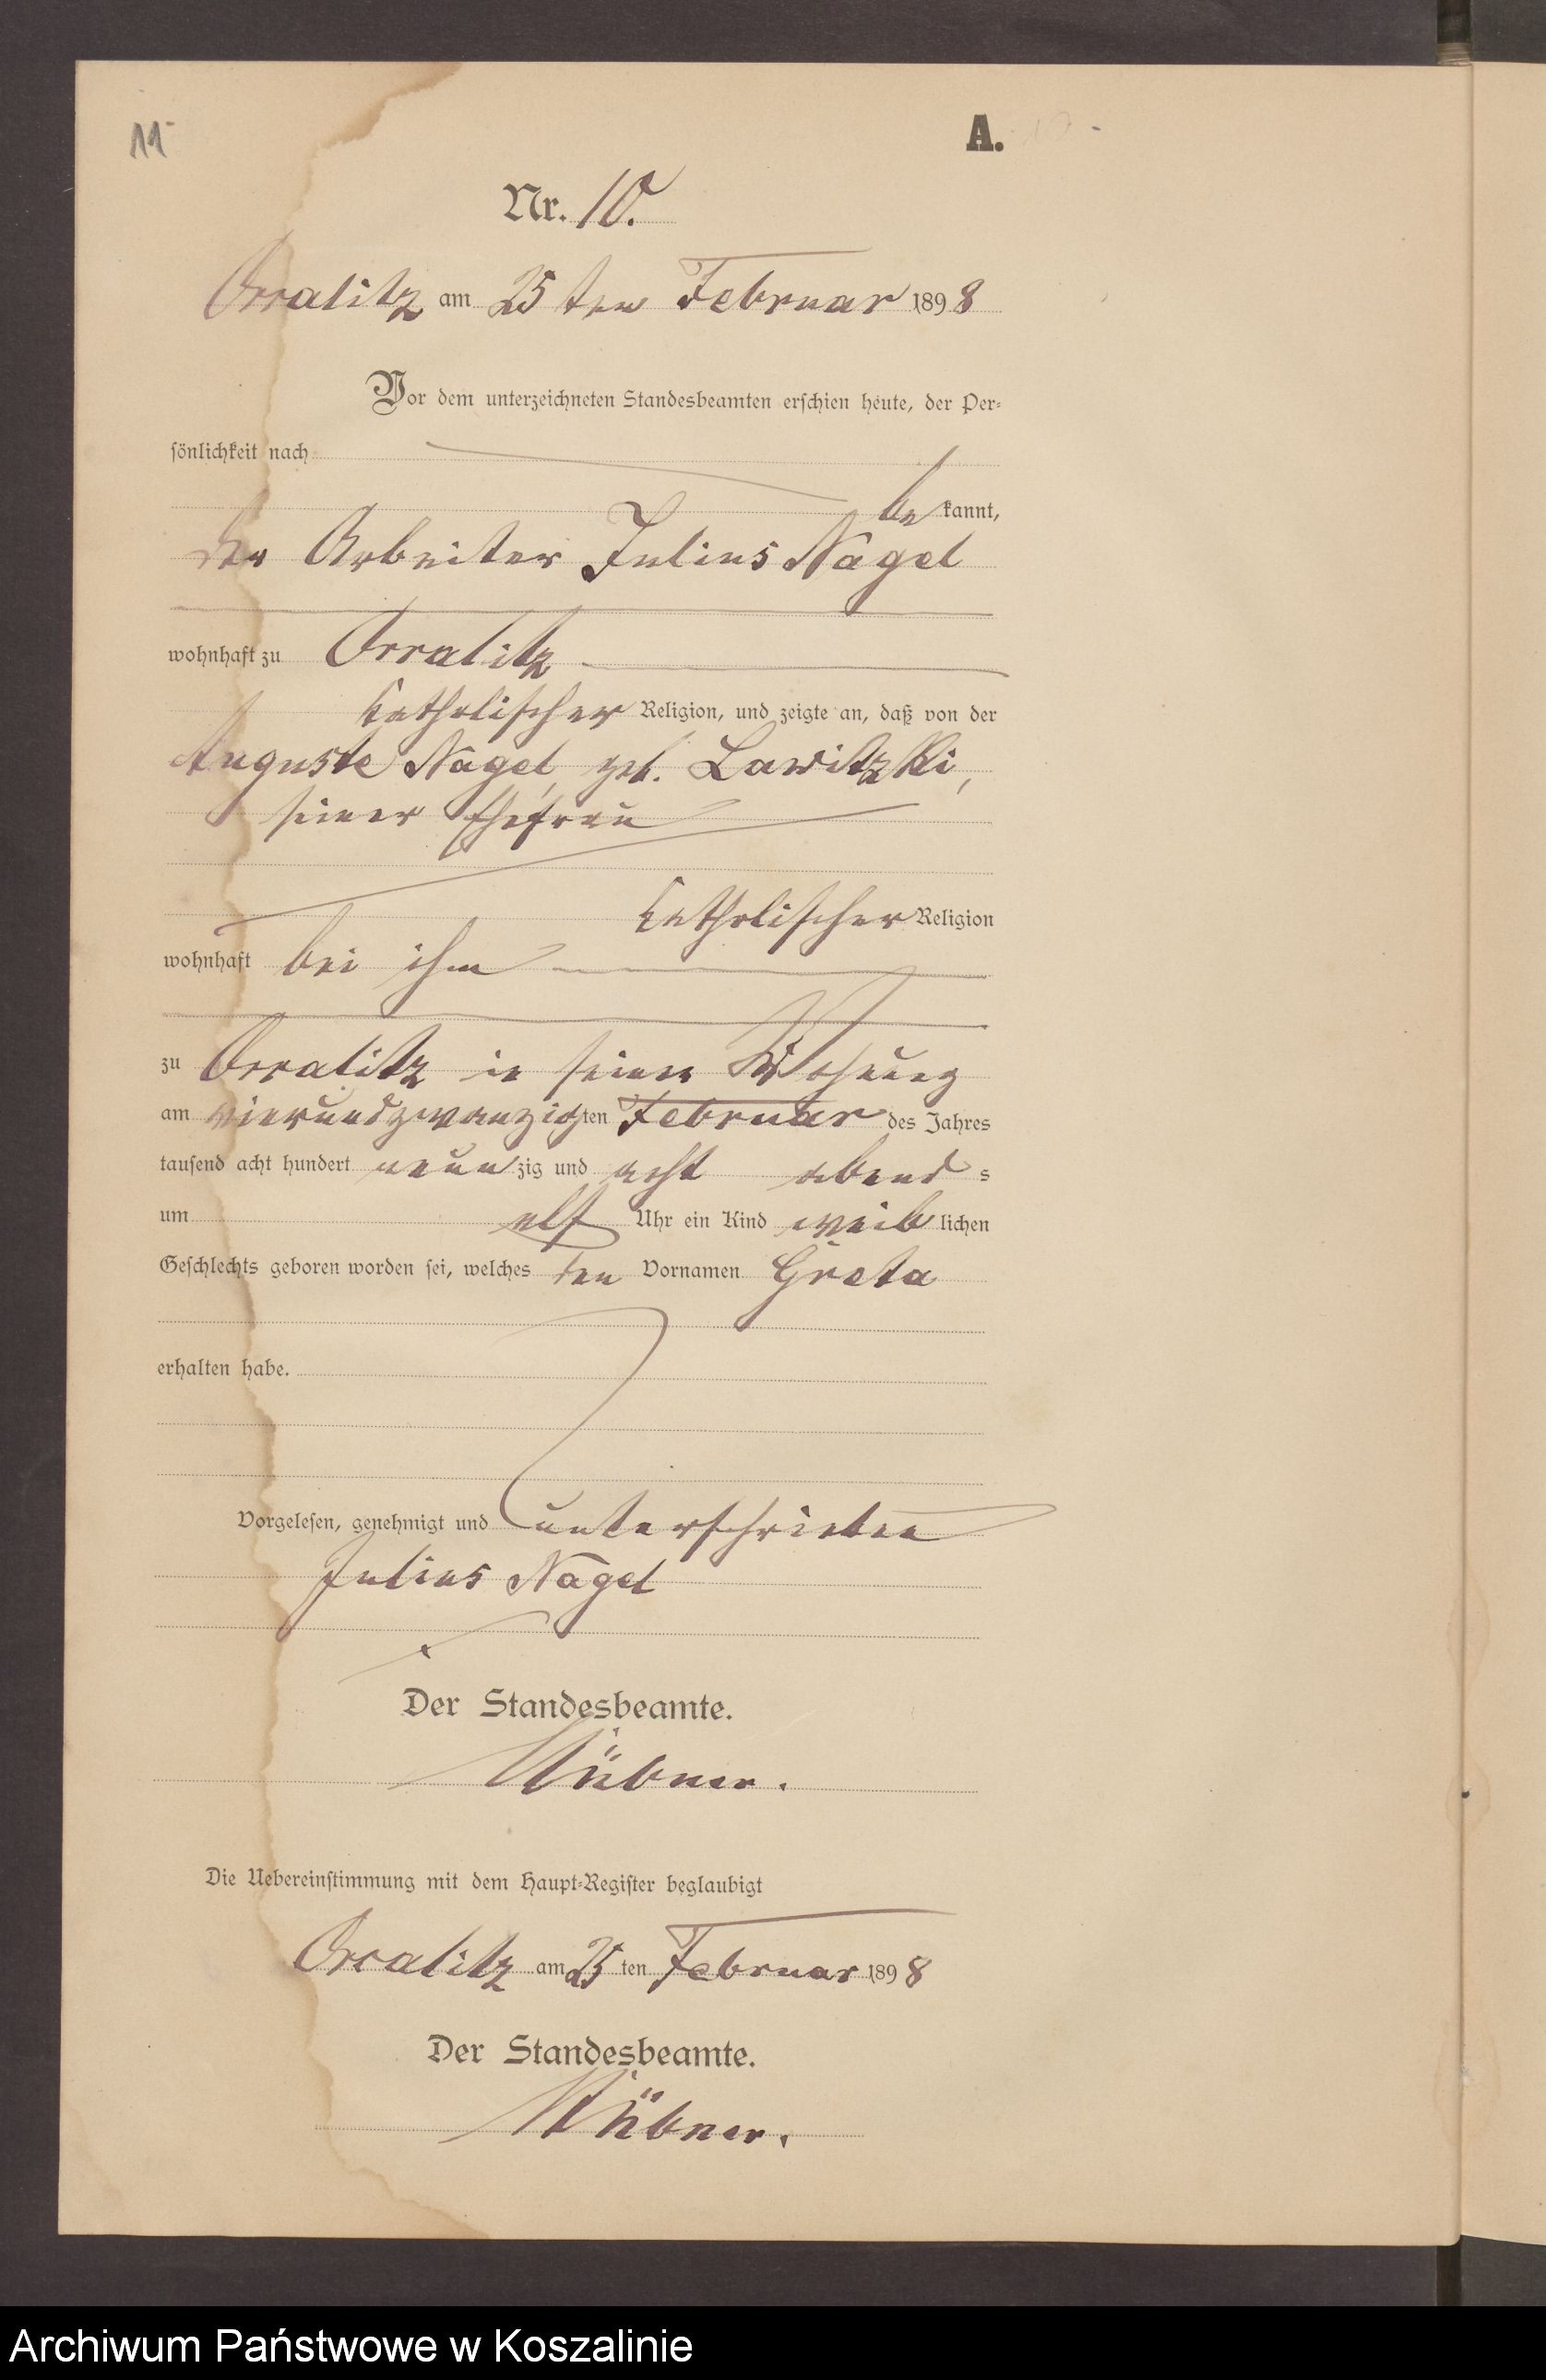 11
A.
Nr. 10.
am 25 ten Februar 1898
Vor dem unterzeichneten Standesbeamten erschien heute, der Per-
sönlichkeit nach
be kannt,
der Arbeiter Julius Nagel
wohnhaft zu
katholischer Religion, und zeigte an, daß von der
Auguste Nagel, geb. Lawitzki,
seiner Ehefrau
katholischer Religion
wohnhaft bei ihm
zu in seiner Wohnung
am vierundzwanzigten Februar des Jahres
tausend acht hundert neunzig und acht abends
um elf Uhr ein Kind weiblichen
Geschlechts geboren worden sei, welches den Vornamen Greta
erhalten habe.
Vorgelesen, genehmigt und unterschrieben
Julius Nagel
Der Standesbeamte.
Die Uebereinstimmung mit dem Haupt-Register beglaubigt
am 25 ten Februar 1898
Der Standesbeamte.
Archiwum Państwowe w Koszalinie